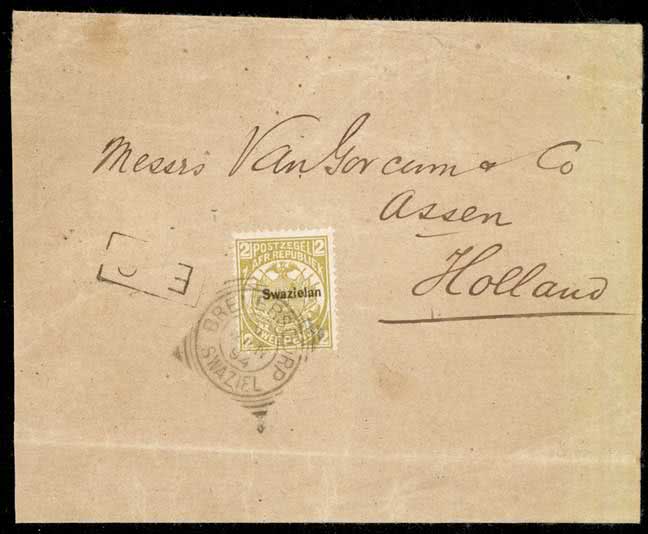 Messrs Van Gorcum & Co
Assen
Holland
2 POSTZEGEL 2
AFR REPUBLIEK
Swazielan
TWEE PE
BREMERSDORP
94
SWAZIEL